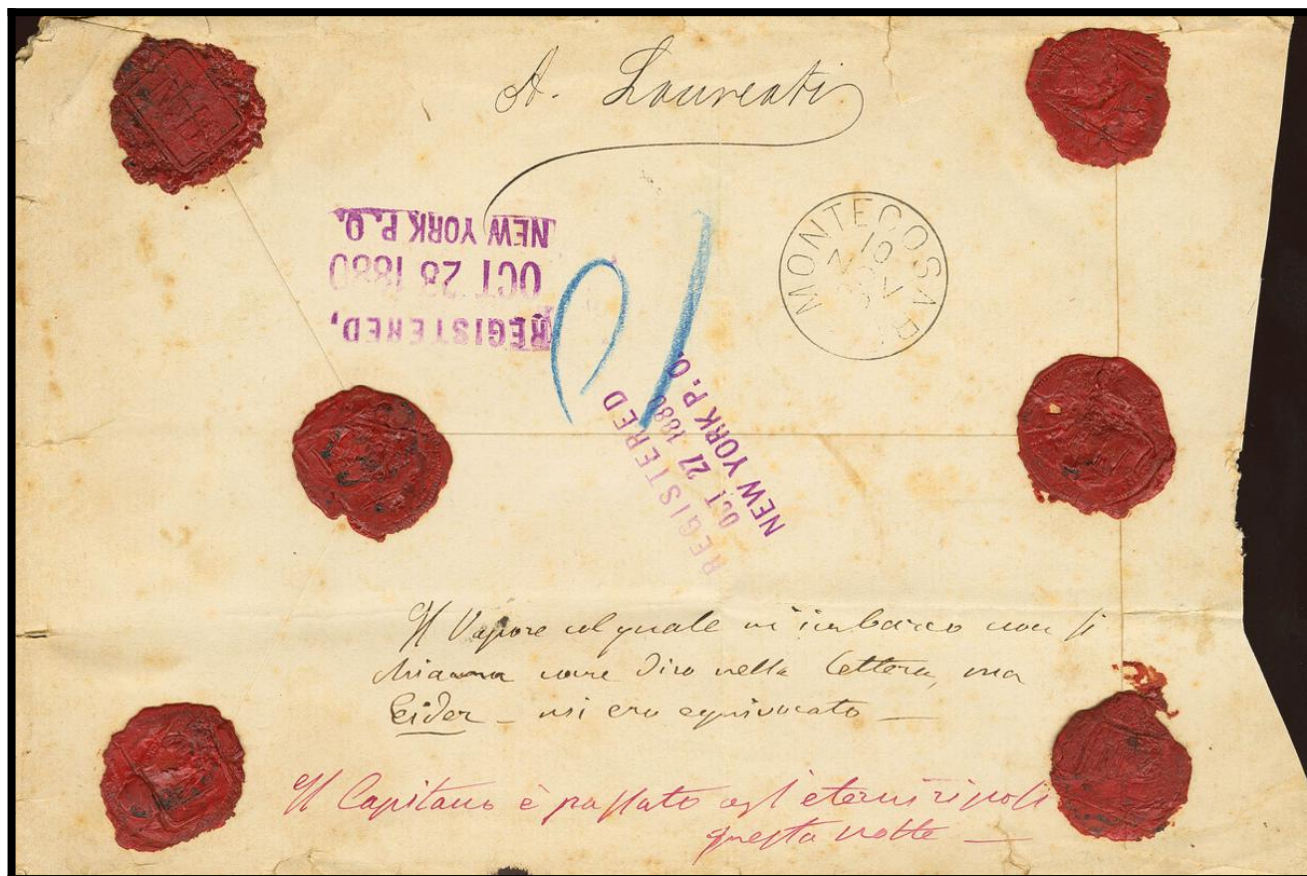 A. Laureati
REGISTERED,
OCT 28 1880
NEW YORK P.O.
MONTECOSAR
10
NOV
REGISTERED
OCT 27 1880
NEW YORK P. O.
Il Vapore col quale m'imbarco non si
chiama come dico nella lettera, ma
Eider – mi ero equivocato –
Il Capitano è passato agl'eterni riposi
questa notte –